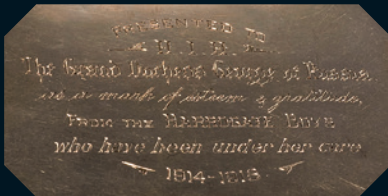 PRESENTED TO
H.I.H.
The Grand Duchess George of Russia
as a mark of esteem & gratitude,
FROM THE HARROGATE BOYS
who have been under her care
1914-1918